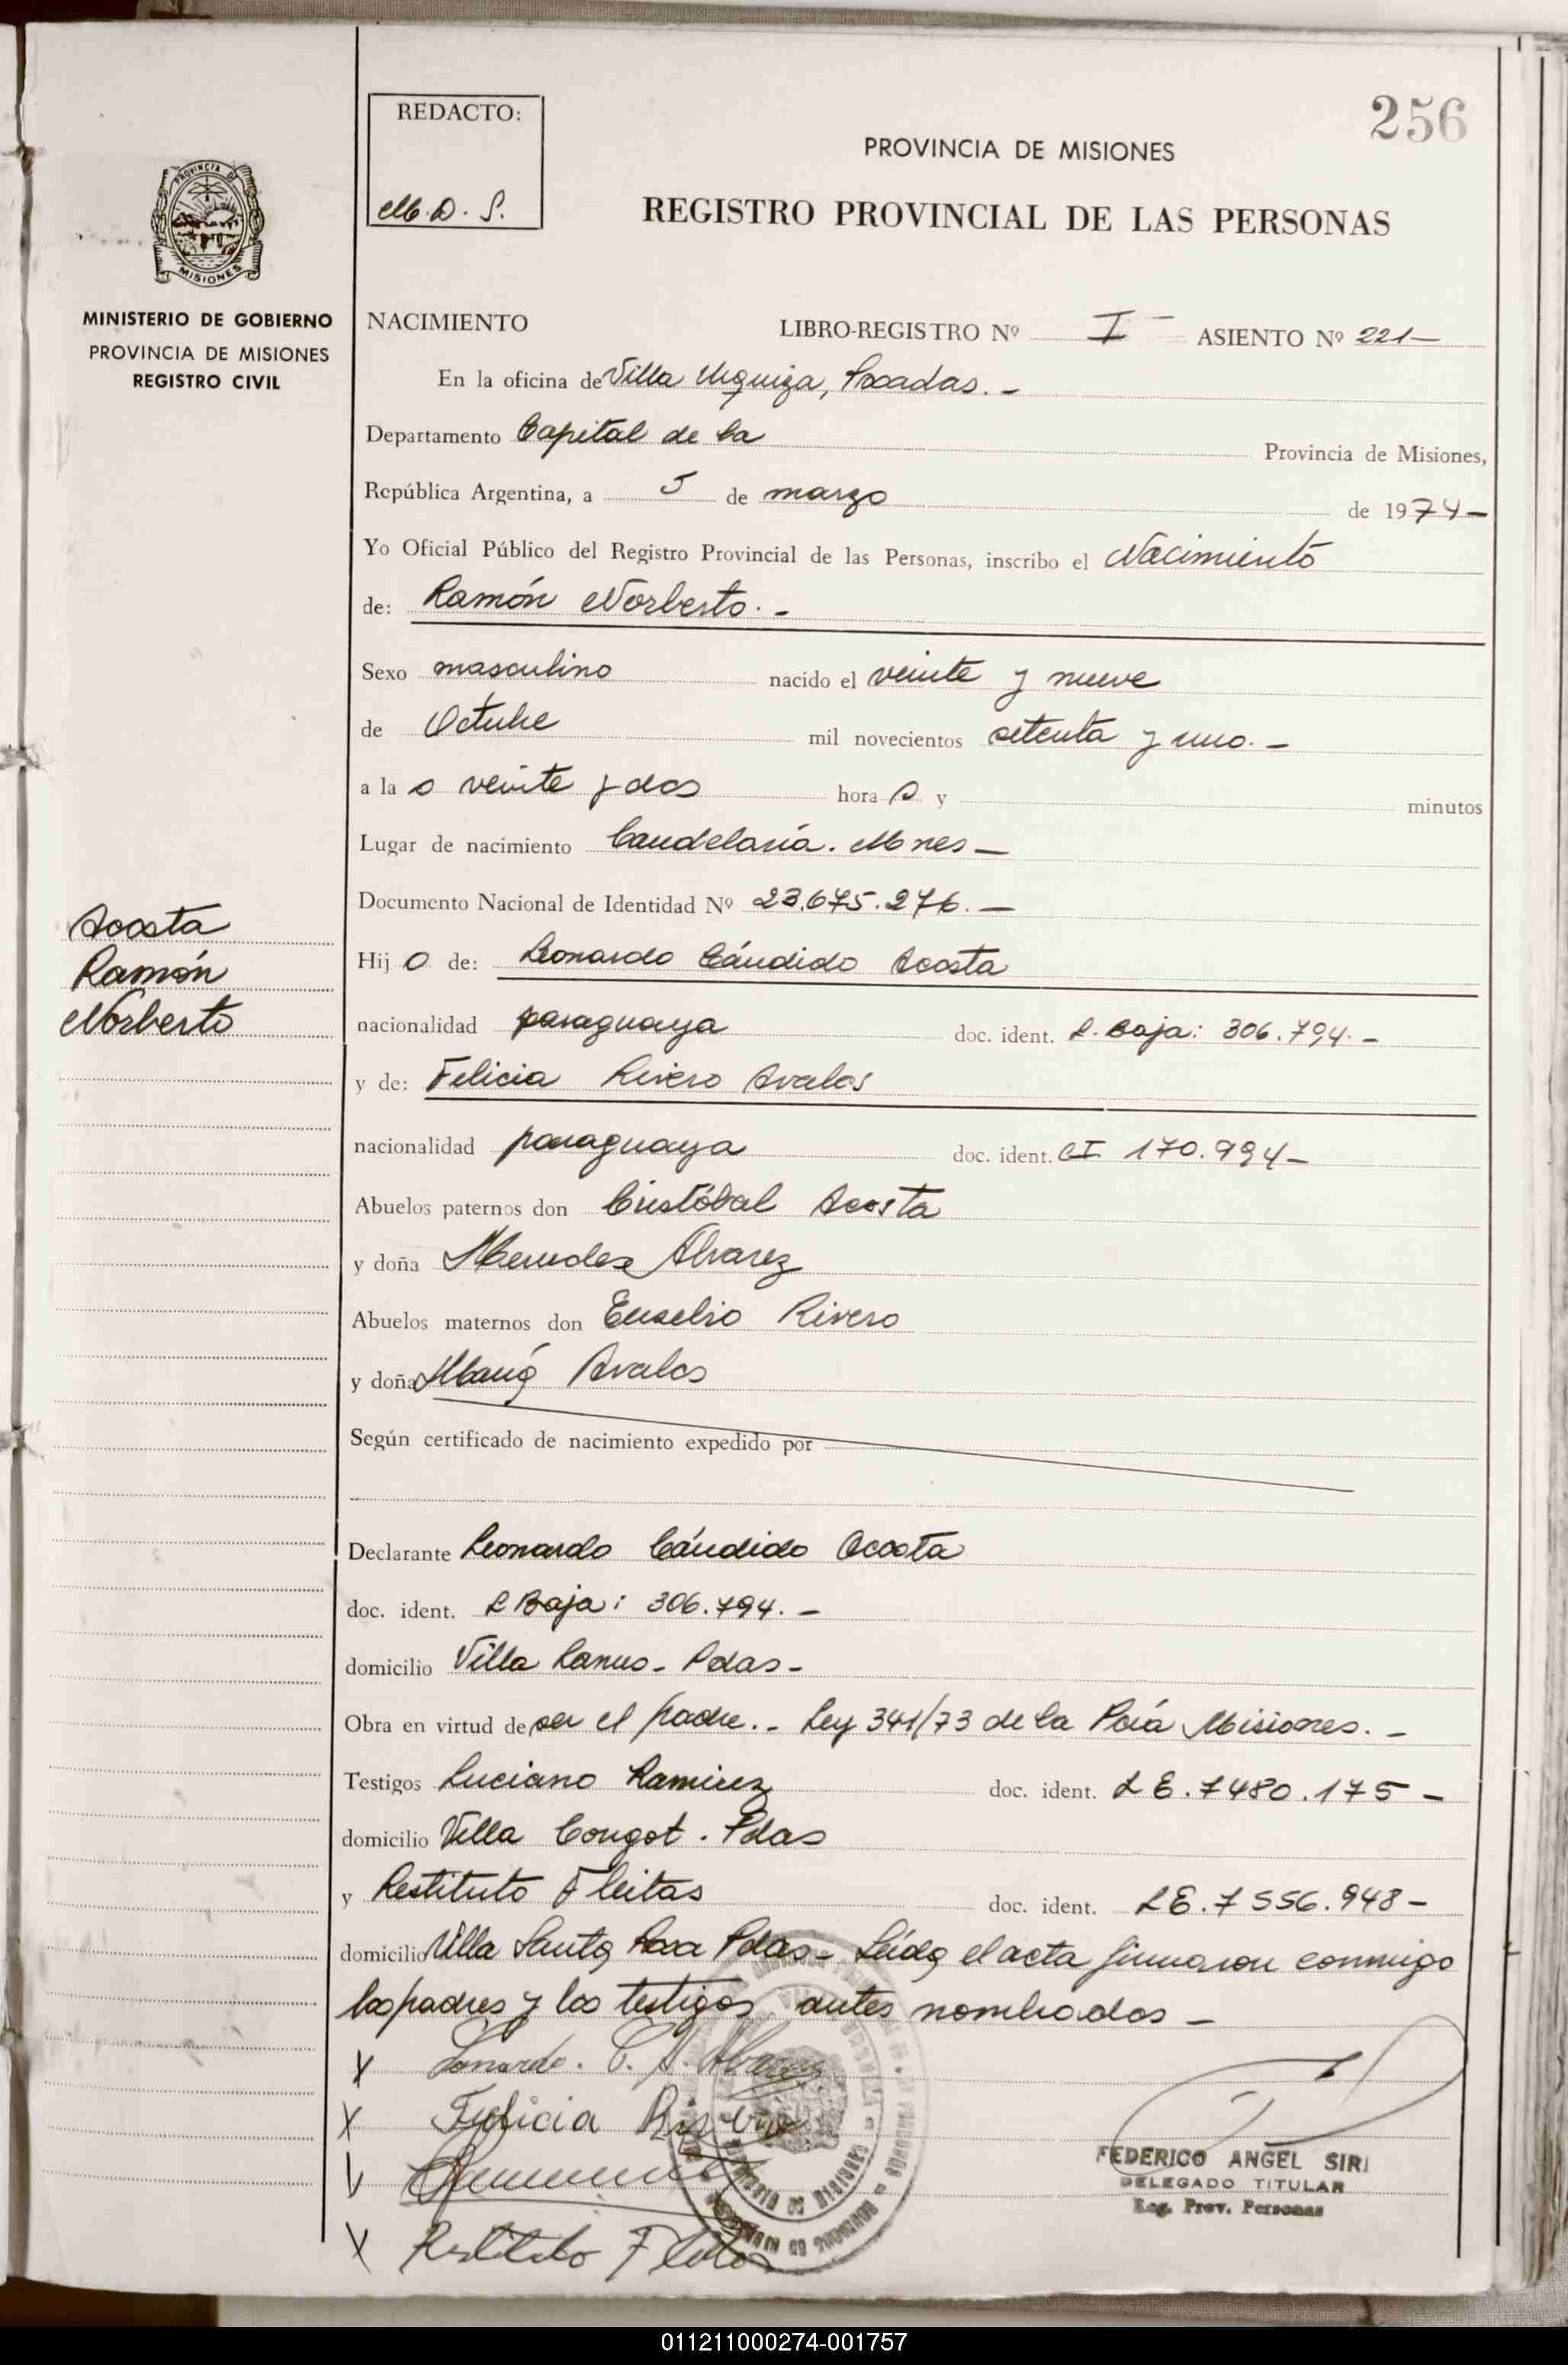 256
REDACTO:
M.D.S.
PROVINCIA DE MISIONES
REGISTRO PROVINCIAL DE LAS PERSONAS
PROVINCIA DE
MISIONES
MINISTERIO DE GOBIERNO
PROVINCIA DE MISIONES
REGISTRO CIVIL
NACIMIENTO LIBRO-REGISTRO Nº I - ASIENTO Nº 221-
En la oficina de Villa Urquiza, Posadas. -
Departamento Capital de la Provincia de Misiones,
República Argentina, a 5 de marzo de 1974-
Yo Oficial Público del Registro Provincial de las Personas, inscribo el Nacimiento
de: Ramón Norberto. -
Sexo masculino nacido el veinte y nueve
de Octubre mil novecientos setenta y uno. -
a la s veinte y dos hora s y minutos
Lugar de nacimiento Candelaria. Mnes -
Documento Nacional de Identidad Nº 23.675.276. -
Acosta
Ramón
Norberto
Hij o de: Leonardo Cándido Acosta
nacionalidad paraguaya doc. ident. L. Baja: 306.794. -
y de: Felicia Rivero Avalos
nacionalidad paraguaya doc. ident. CI 170.994-
Abuelos paternos don Cristóbal Acosta
y doña Mercedes Alvarez
Abuelos maternos don Eusebio Rivero
y doña María Avalos
Según certificado de nacimiento expedido por
Declarante Leonardo Cándido Acosta
doc. ident. L Baja: 306.794. -
domicilio Villa Lanus - Pdas -
Obra en virtud de ser el padre. - Ley 341/73 de la Pcia Misiones. -
Testigos Luciano Ramirez doc. ident. L E. 7480.175 -
domicilio Villa Cougot. Pdas
y Restituto Fleitas doc. ident. L E. 7556.948 -
domicilio Villa Santa Rosa Pdas - Leída el acta firmaron conmigo
los padres y los testigos antes nombrados -
X Leonardo. C. A. Alvarez
X Felicia Rivero
X Restituto Fleitas
FEDERICO ANGEL SIRI
DELEGADO TITULAR
Reg. Prov. Personas
011211000274-001757